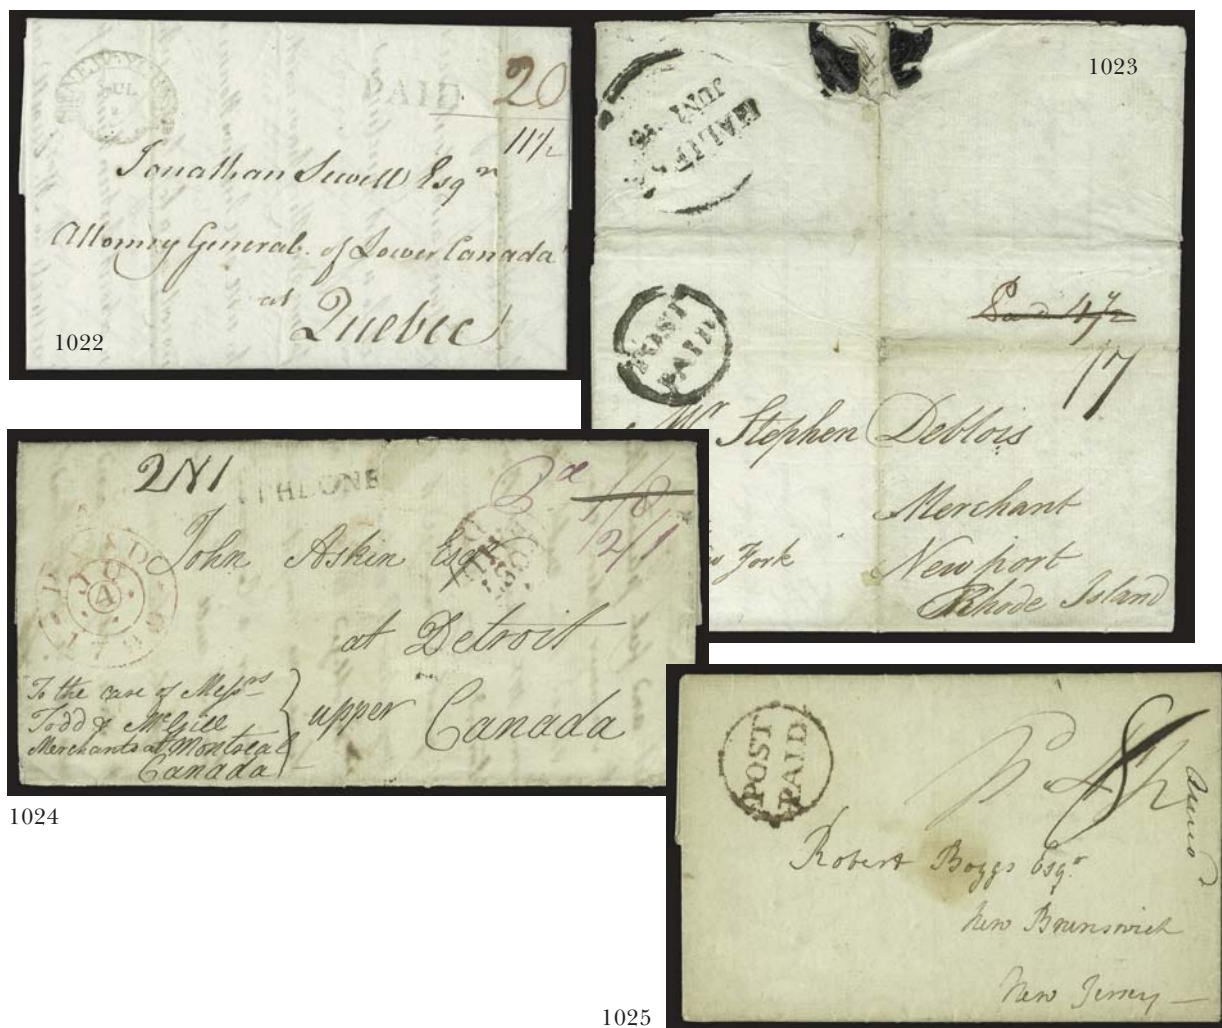 NEW-YORK
JUL
PAID
20
11½
Jonathan Sewell Esqr
Attorney General of Lower Canada
at
Quebec
1022
1023
HALIFAX
JUN
POST
PAID
Paid 4½
17
Mr Stephen Deblois
Merchant
York
Newport
Rhode Island
2N1
ATHLONE
1/8
2/1
John Askin Esqr
at Detroit
To the care of Messrs
Todd & McGill
Merchants at Montreal
Canada
upper Canada
1024
POST
PAID
8
Robert Boggs Esqr
New Brunswick
New Jersey
1025